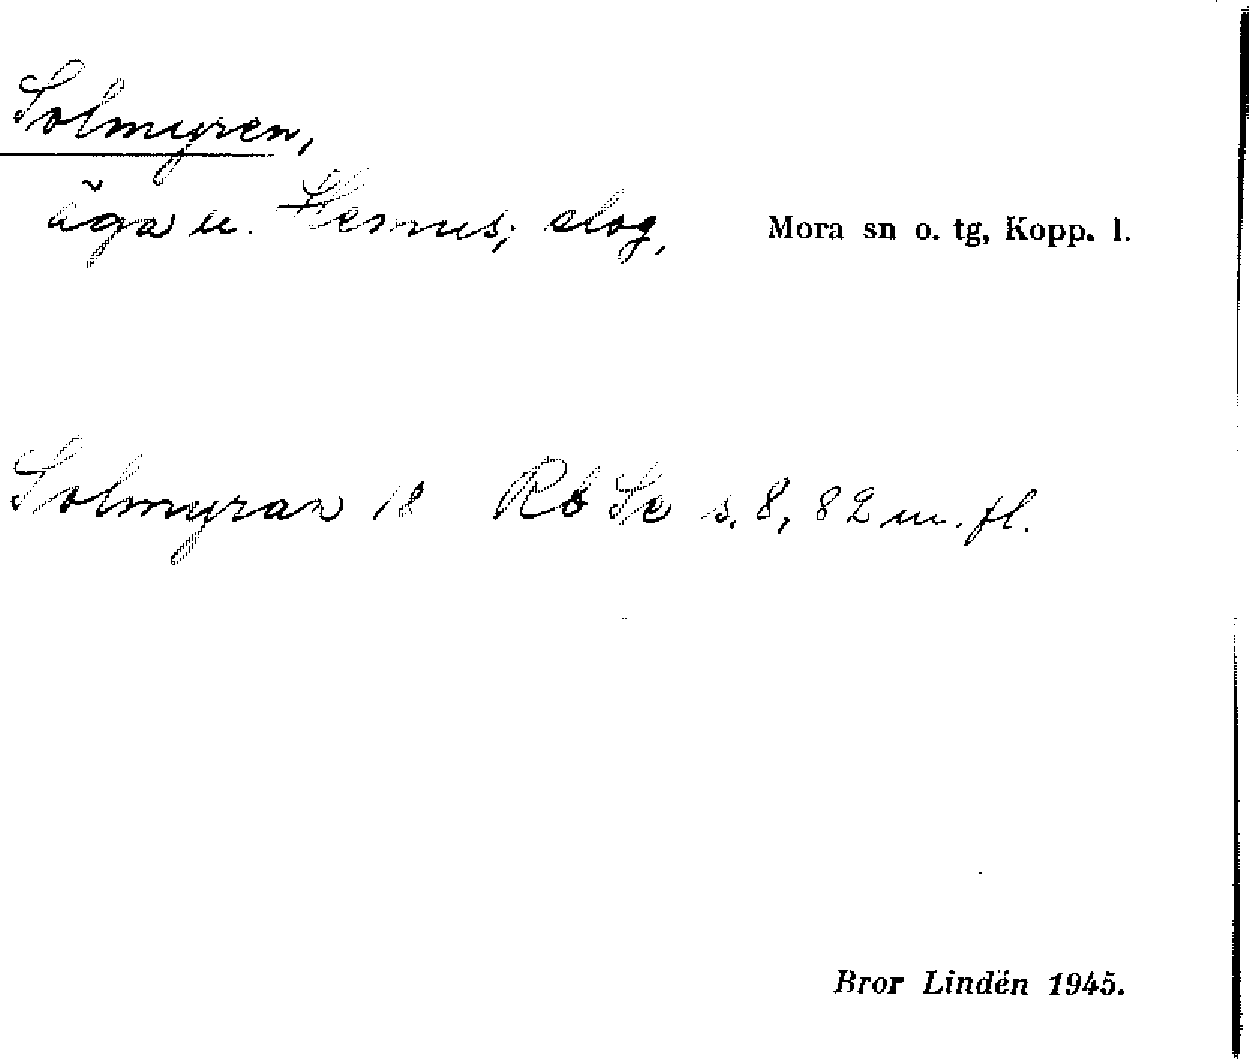 Solmyren,
äga u. Hemus; slog,
Mora sn o. tg, Kopp. l.
Solmyran 18 Rb Se s. 8, 82 m. fl.
Bror Lindén 1945.